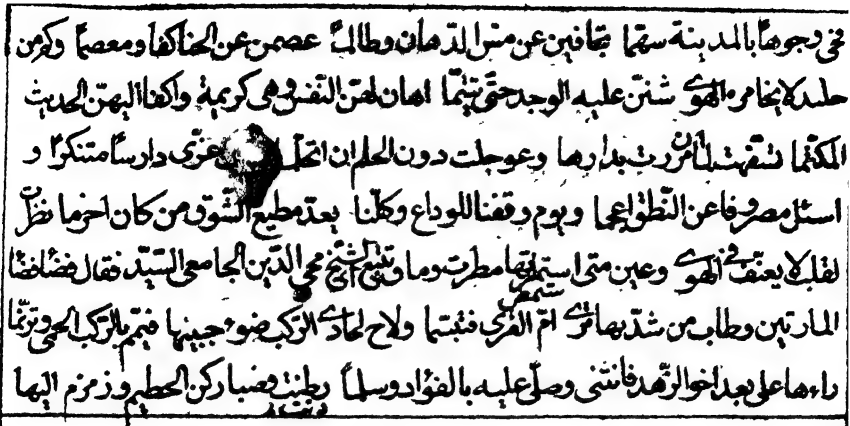 في وجوها بالمدينة سهما تجافين عن مس الدهان وطالما عصمن عن الحنا كفا ومعصما وكم من
جليد لا يخامره الهوى شنن عليه الوجد حتى تتيما اهان لهن النفس وهي كريمة والقا اليهن الحديث
المكتما تسفهت لما ان مررت بدارها وعوجلت دون الحلم ان اتحلما عزى دارسا متنكرا و
اسئل مصروفا عن النطق اعجما ويوم وقفنا للوداع وكلنا يعد مطيع الشوق من كان احزما نظرت
لقلب لا يعنف في الهوى وعين متى استمطرتها مطرت وما وتتبع الشيخ محي الدين الجامعي السيد فقال فضا فضا
المازتين وطاب من شذ بها ثرى ام القرى فتبسما ولاح لحادى الركب ضوء جبينها فيمم بالركب الحمى وترنما
راءها على بعد اخو الزهد فانثنى وصلى عليه بالفؤاد وسلما ركن الحطيم وزمزم اليها